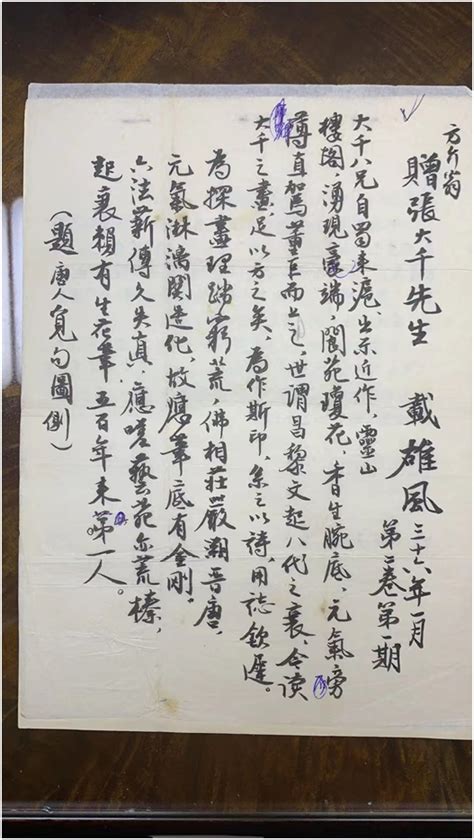 方介翁
贈張大千先生 載雄風三十六年一月
第二卷第一期
大千八兄自蜀來滬，出示近作，靈山
樓閣，湧現毫端，閬苑瓊花，香生腕底，元氣旁
礴直駕董巨而上之，世謂昌黎文起八代之衰，今读
大千之畫，足以方之矣，為作斯印，系之以詩，用誌欽遲。
為探畫理蹱窮荒，佛相莊嚴溯晋唐，
元氣淋漓闢造化，故應筆底有金剛。
六法薪傳久失真，應嗟藝苑亦荒榛，
起衰賴有生花筆，五百年來第一人。
（題唐人覓句圖側）